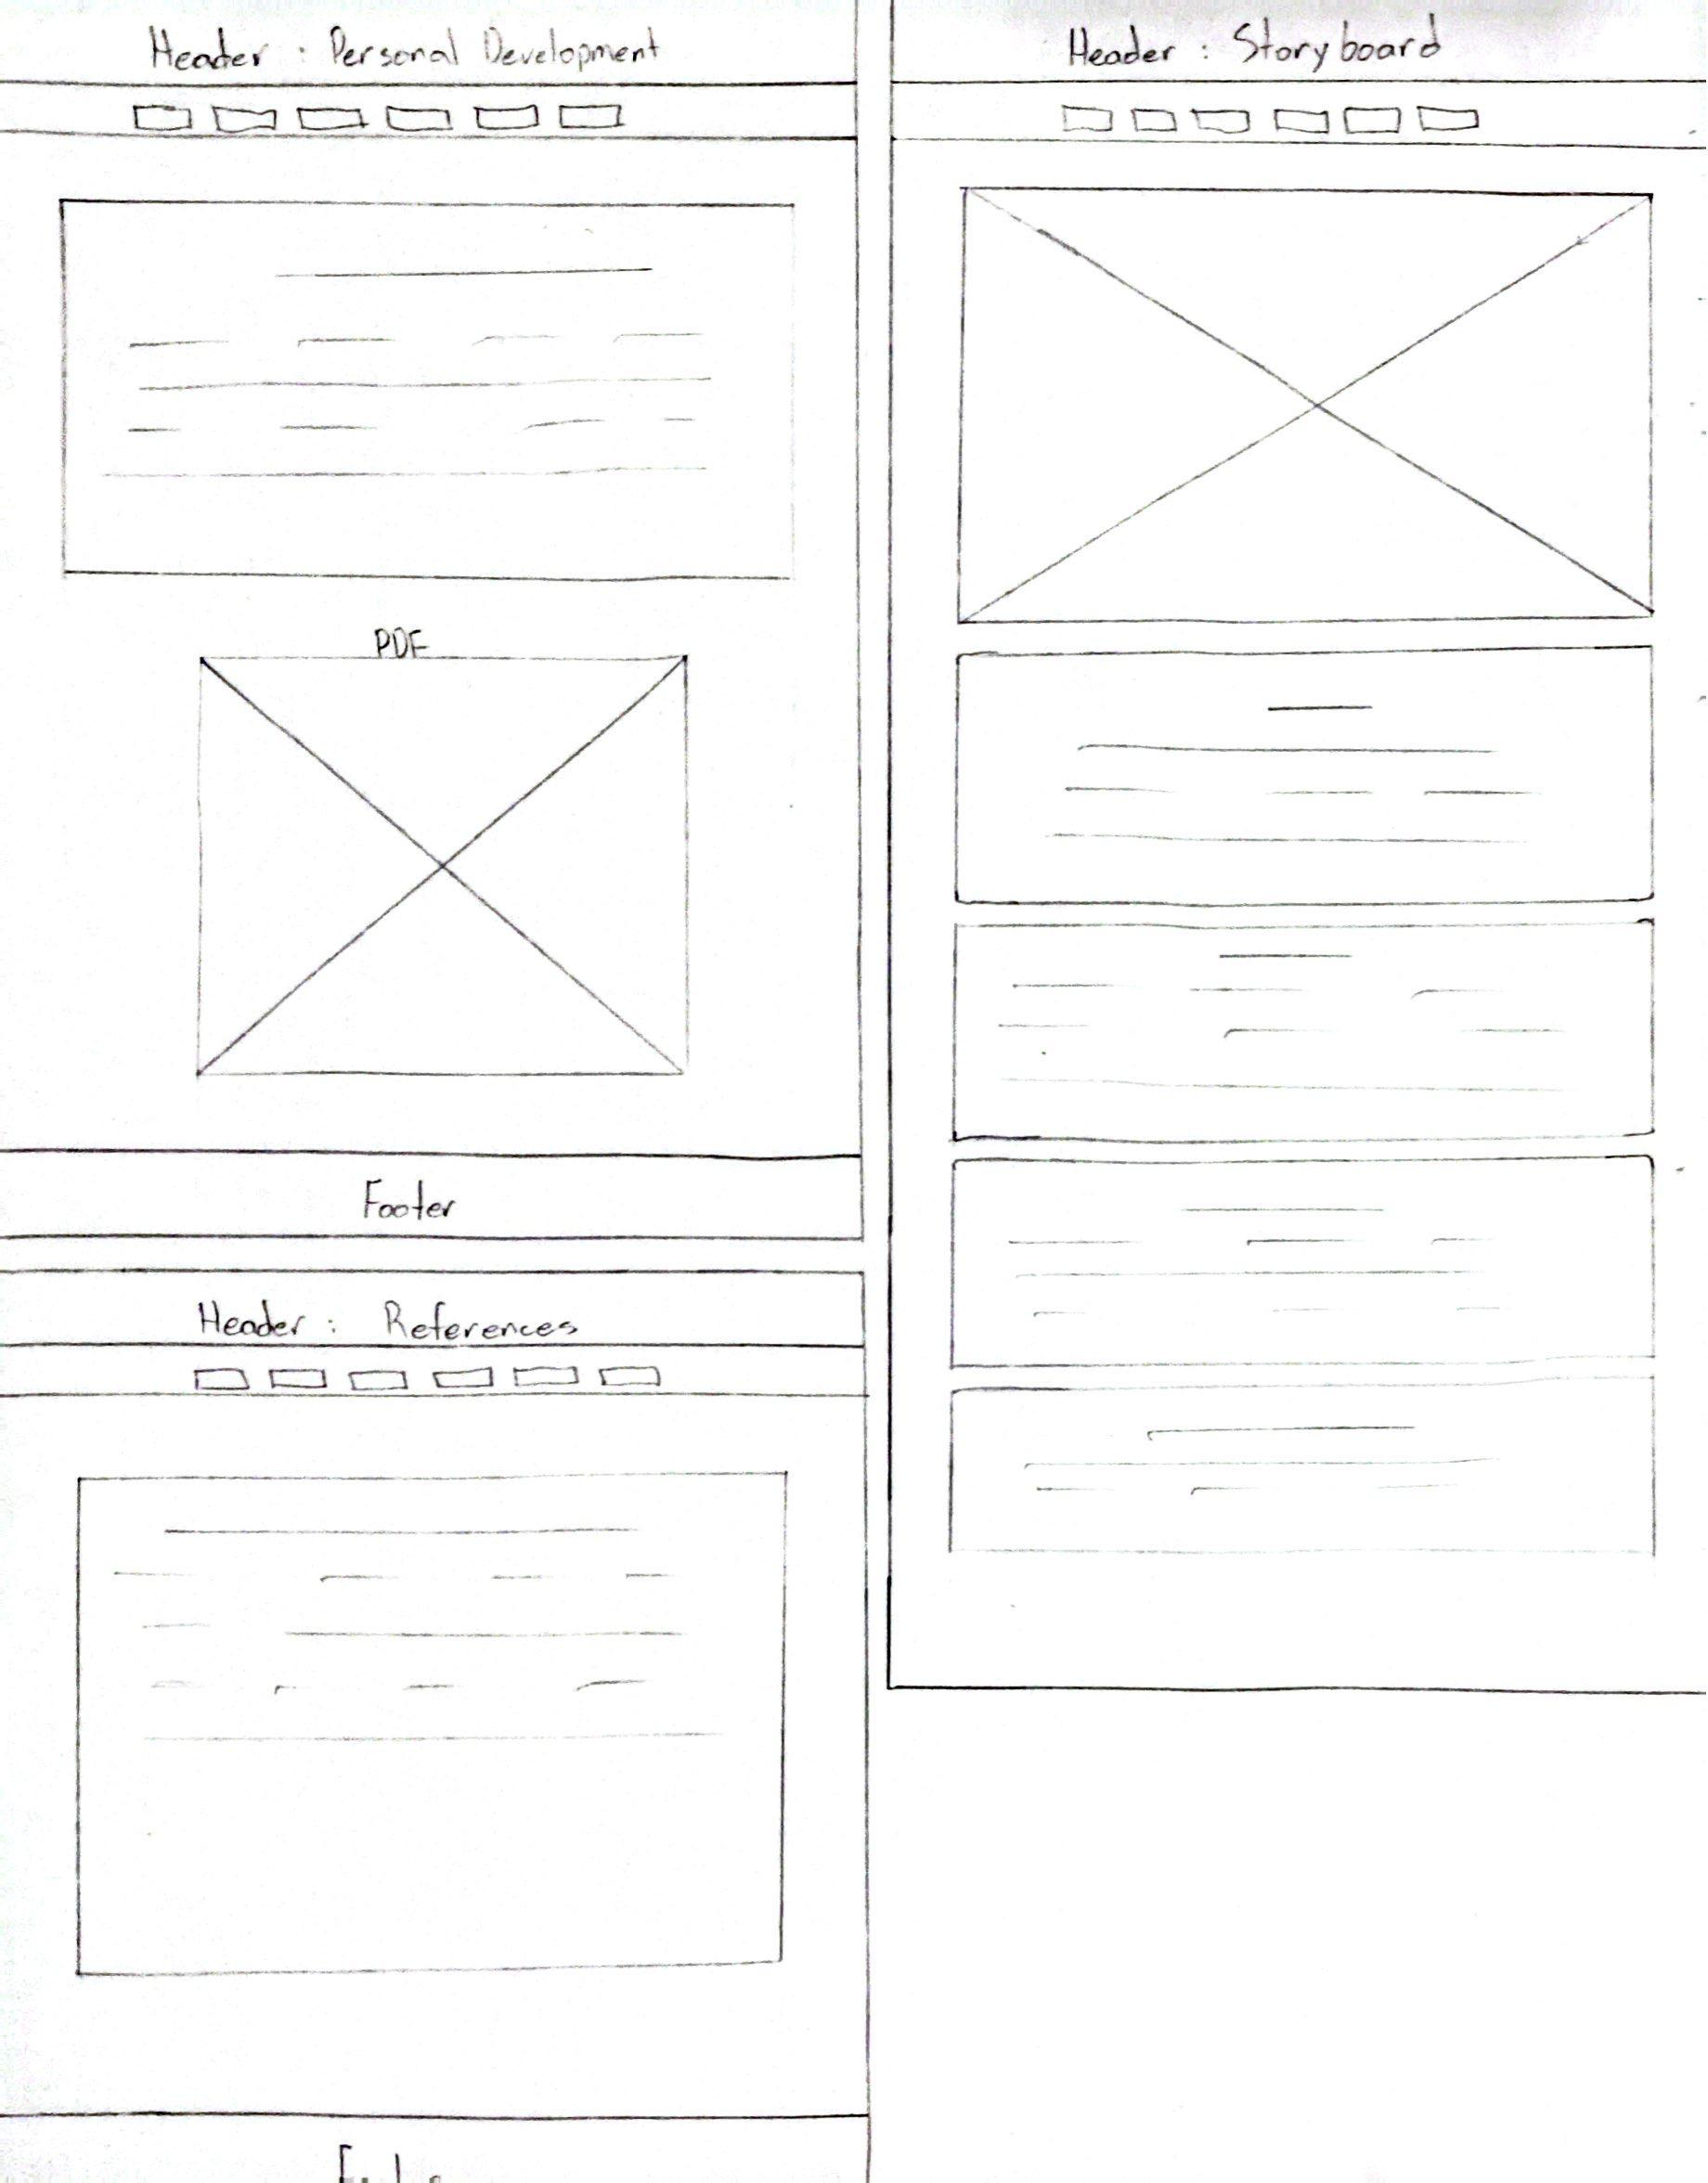 Header : Personal Development
PDF
Footer
Header : References
Header : Storyboard